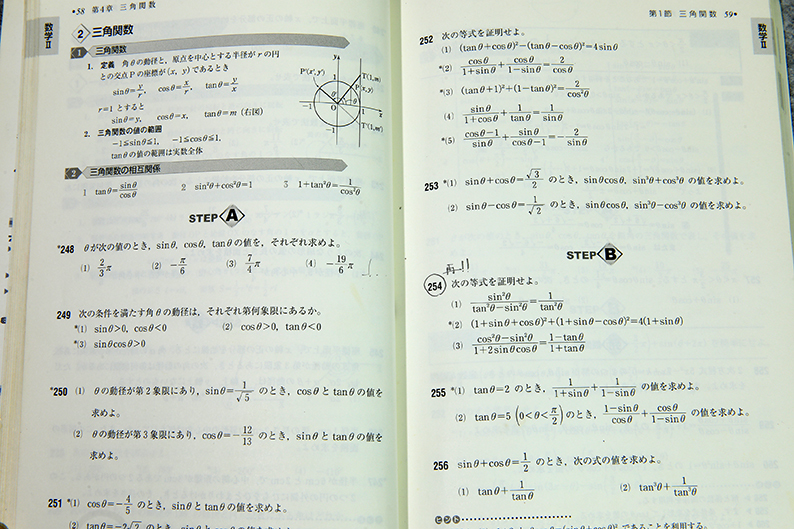 •58 第4章 三角関数
数学Ⅱ
2 三角関数
1 三角関数
1. 定義 角θの動径と，原点を中心とする半径がrの円
との交点Pの座標が(x, y)であるとき
sinθ=y/r, cosθ=x/r, tanθ=y/x
r=1とすると
sinθ=y, cosθ=x, tanθ=m (右図)
2. 三角関数の値の範囲
-1≦sinθ≦1, -1≦cosθ≦1,
tanθの値の範囲は実数全体
P'(x', y')
y
1
T(1, m)
P
(x, y)
θ'
θ
-1
O
1
x
-1
T'(1, m')
2 三角関数の相互関係
1 tanθ=sinθ/cosθ 2 sin²θ+cos²θ=1 3 1+tan²θ=1/cos²θ
STEP A
*248 θが次の値のとき，sinθ, cosθ, tanθの値を，それぞれ求めよ。
(1) 2/3π (2) -π/6 (3) 7/4π (4) -19/6π
249 次の条件を満たす角θの動径は，それぞれ第何象限にあるか。
*(1) sinθ>0, cosθ<0 (2) cosθ>0, tanθ<0
*(3) sinθcosθ>0
*250 (1) θの動径が第2象限にあり，sinθ=1/√5 のとき，cosθとtanθの値を
求めよ。
(2) θの動径が第3象限にあり，cosθ=-12/13 のとき，sinθとtanθの値を
求めよ。
251 *(1) cosθ=-4/5 のとき，sinθとtanθの値を求めよ。
(2) tanθ=-2√2 のとき，sinθとcosθの値を求め
第1節 三角関数 59•
数学Ⅱ
252 次の等式を証明せよ。
(1) (tanθ+cosθ)²-(tanθ-cosθ)²=4sinθ
*(2) cosθ/(1+sinθ)+cosθ/(1-sinθ)=2/cosθ
*(3) (tanθ+1)²+(1-tanθ)²=2/cos²θ
(4) sinθ/(1+cosθ)+1/tanθ=1/sinθ
*(5) (cosθ-1)/sinθ+sinθ/(cosθ-1)=-2/sinθ
253 *(1) sinθ+cosθ=√3/2 のとき，sinθcosθ, sin³θ+cos³θ の値を求めよ。
(2) sinθ-cosθ=1/√2 のとき，sinθcosθ, sin³θ-cos³θ の値を求めよ。
STEP B
254 次の等式を証明せよ。
(1) sin²θ/(tan²θ-sin²θ)=1/tan²θ
*(2) (1+sinθ+cosθ)²+(1+sinθ-cosθ)²=4(1+sinθ)
(3) (cos²θ-sin²θ)/(1+2sinθcosθ)=(1-tanθ)/(1+tanθ)
255 *(1) tanθ=2 のとき，1/(1+sinθ)+1/(1-sinθ) の値を求めよ。
(2) tanθ=5 (0<θ<π/2) のとき，(1-sinθ)/cosθ+cosθ/(1-sinθ) の値を求めよ。
256 sinθ+cosθ=1/2 のとき，次の式の値を求めよ。
(1) tanθ+1/tanθ (2) tan³θ+1/tan³θ
ヒント
であることを利用する。